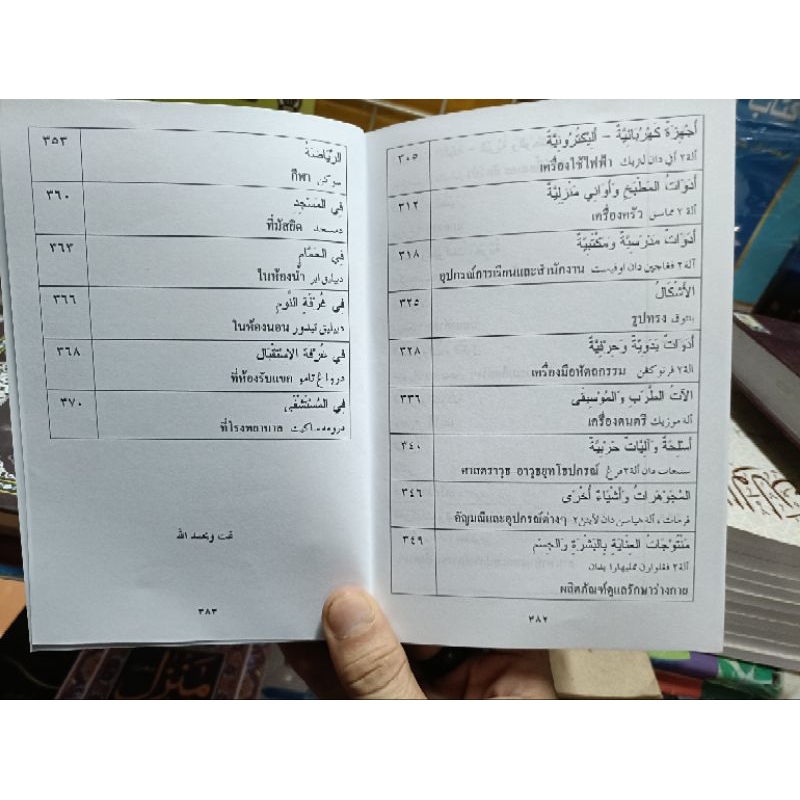 أَجْهِزَةٌ كَهْرَبَائِيَّةٌ - أَلِيكْتِرُونِيَّةٌ
٣٠٥
เครื่องใช้ไฟฟ้า
أَدَوَاتُ المَطْبَخِ وَأَوَانِي مَنْزِلِيَّةٌ
٣١٢
آلة٢ مماسق เครื่องครัว
أَدَوَاتٌ مَدْرَسِيَّةٌ وَمَكْتَبِيَّةٌ
٣١٨
آلة٢ فقاجين دان اوفيست อุปกรณ์การเรียนและสำนักงาน
الأَشْكَالُ
٣٢٥
รูปทรง
أَدَوَاتٌ يَدَوِيَّةٌ وَحِرَفِيَّةٌ
٣٢٨
เครื่องมือหัตถกรรม
آلَاتُ الطَّرَبِ وَالمُوْسِيقَى
٣٣٦
آلة موزيك เครื่องดนตรี
أَسْلِحَةٌ وَآلِيَّاتٌ حَرْبِيَّةٌ
٣٤٠
سنجات دان آلة٢ فرغ ศาสตราวุธ อาวุธยุทโธปกรณ์
المُجَوْهَرَاتُ وَأَشْيَاءٌ أُخْرَى
٣٤٦
فرمات، آلة هياسن دان لأين٢ อัญมณีและอุปกรณ์ต่างๆ
مَنْتُوْجَاتُ العِنَايَةِ بِالبَشَرَةِ وَالجِسْمِ
٣٤٩
ผลิตภัณฑ์ดูแลรักษาร่างกาย
٣٨٢
الرِّيَاضَةُ
٣٥٣
سوكن กีฬา
فِي المَسْجِدِ
٣٦٠
دمسجد ที่มัสยิด
فِي الحَمَّامِ
٣٦٣
دبيليق اير ในห้องน้ำ
فِي غُرْفَةِ النَّوْمِ
٣٦٦
دبيليق تيدور ในห้องนอน
فِي غُرْفَةِ الاِسْتِقْبَالِ
٣٦٨
درواغ تامو ที่ห้องรับแขก
فِي المُسْتَشْفَى
٣٧٠
درومه ساكيت ที่โรงพยาบาล
تمت وبحمد الله
٣٨٣